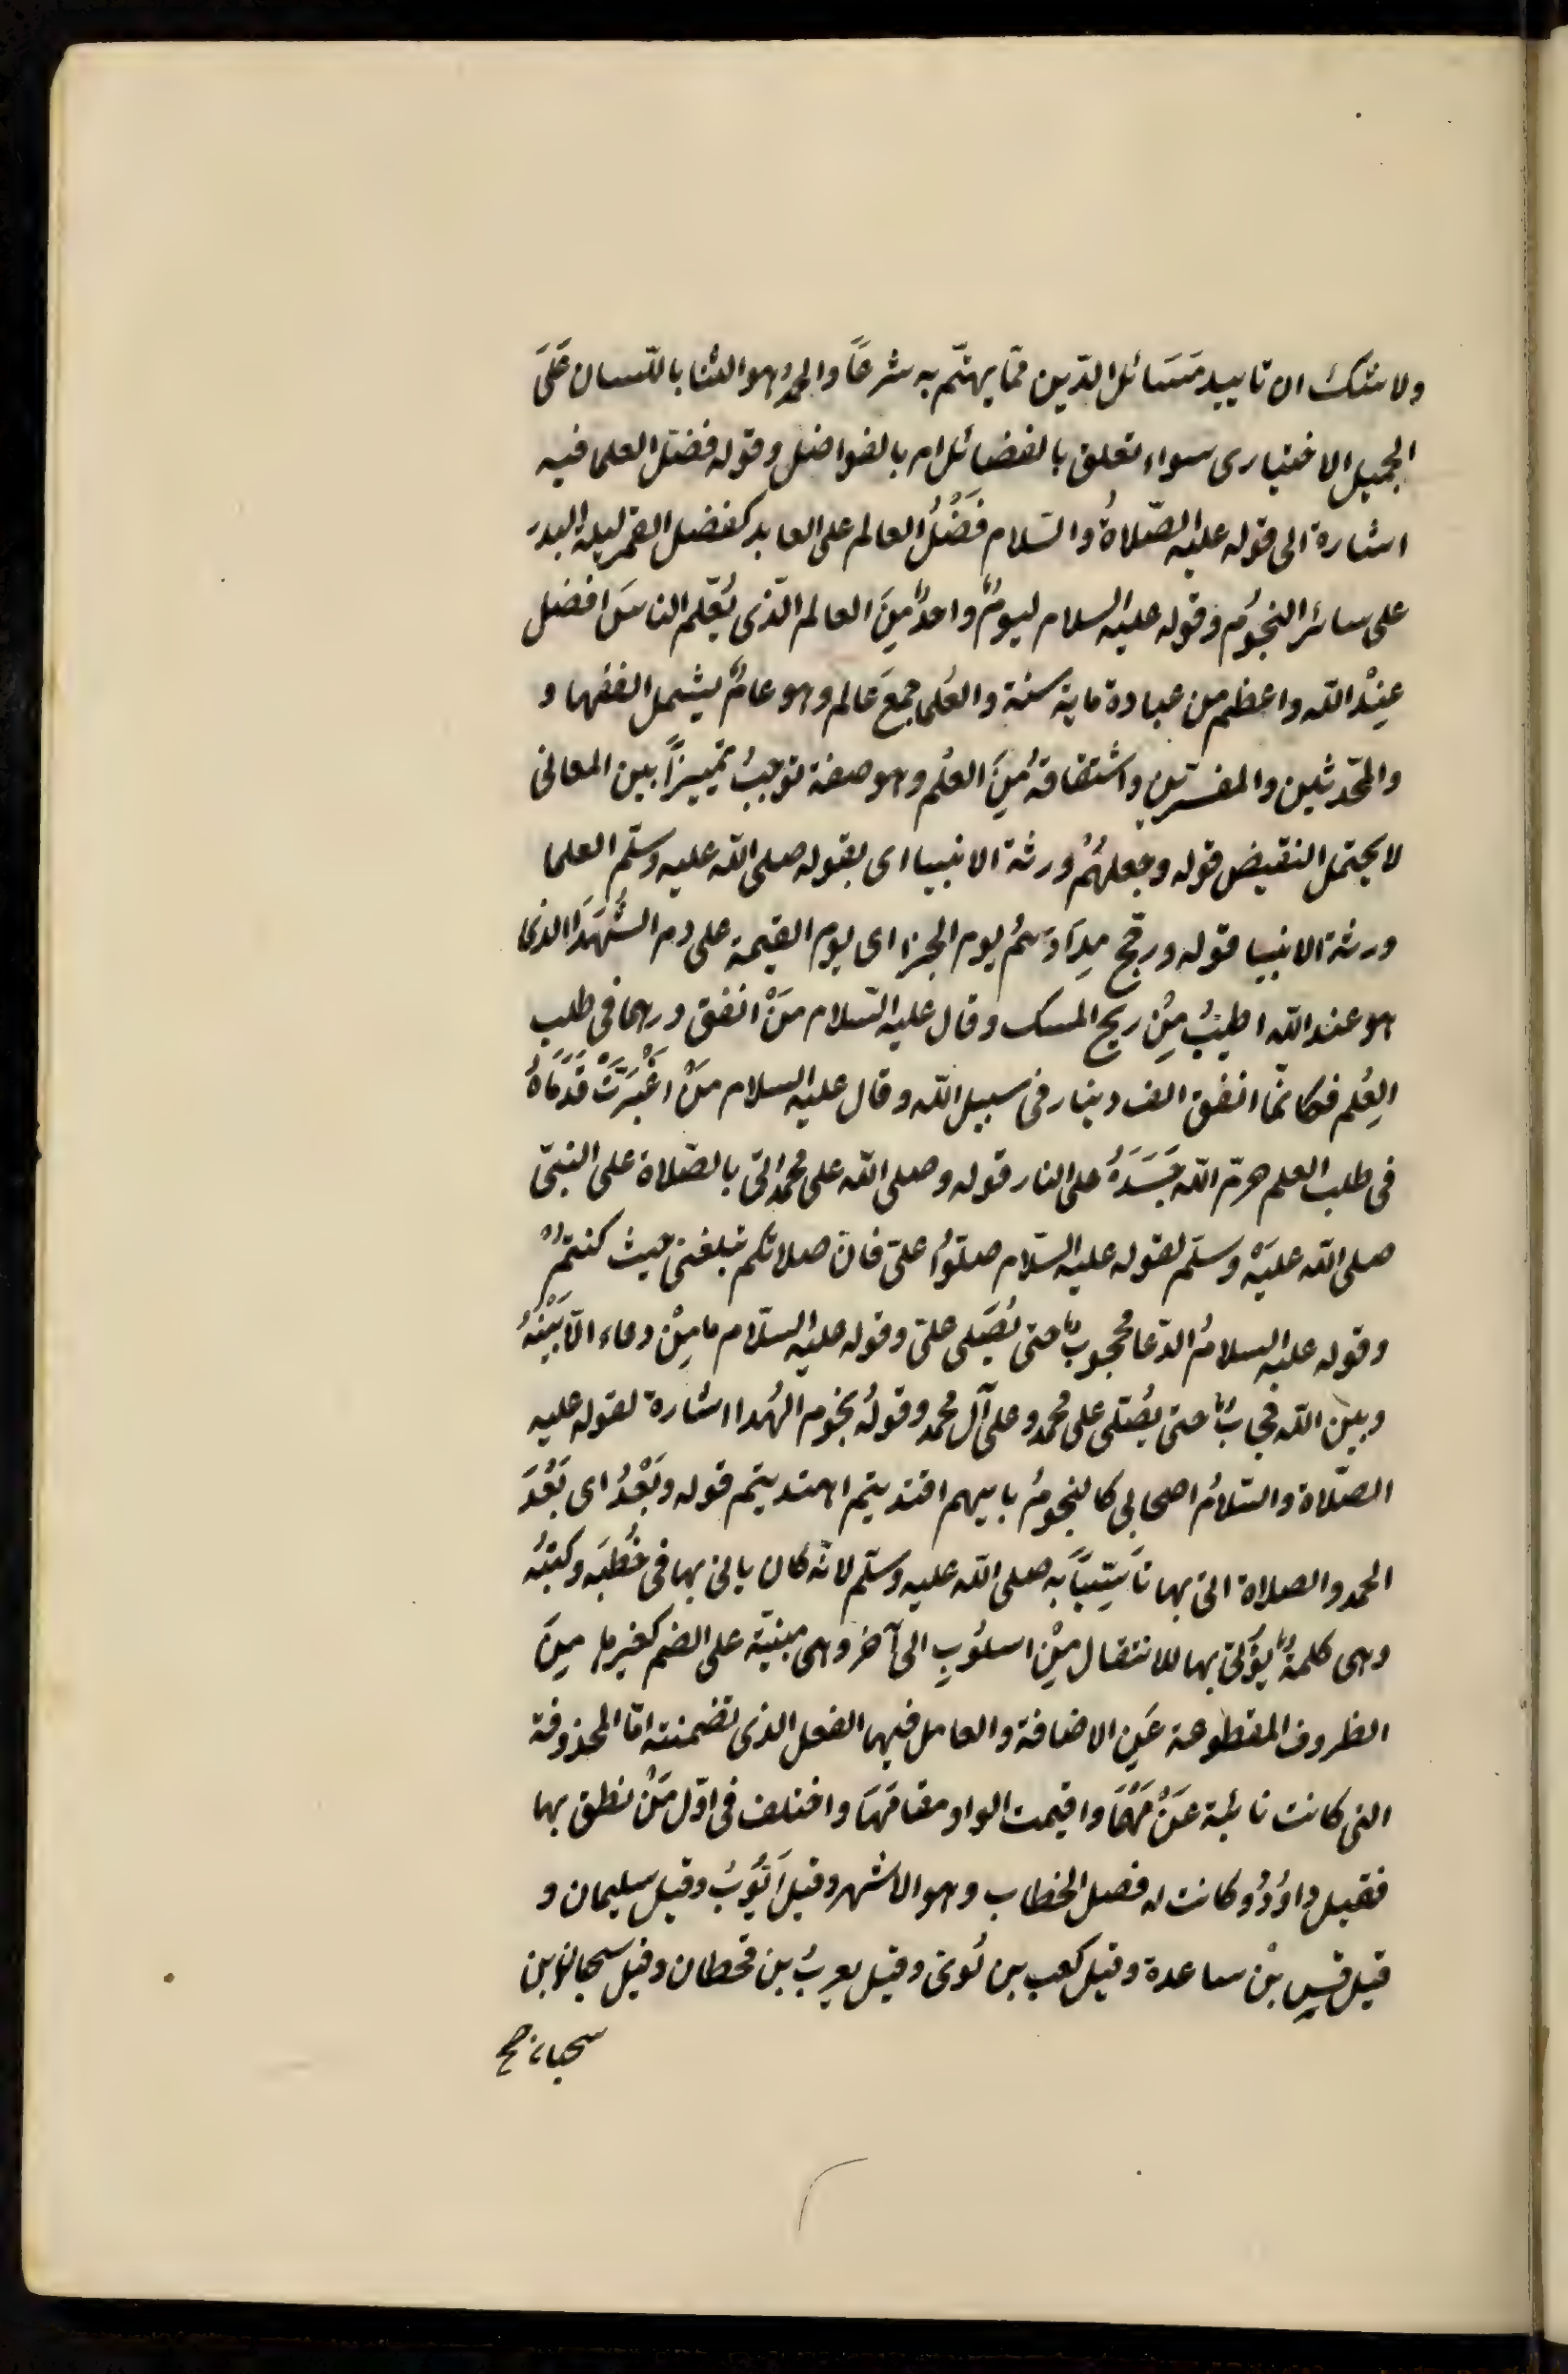 ولا شك ان تاييد مَسَائل الدّين ممّا يهتّم به شرعًا والحمدُ هو الثنا باللّسان عَلَى
الجميل الاختيارى سواء تعلق بالفضائل ام بالفواضل وقوله فضّل العلما فيه
اشارة الى قوله عليه الصّلاةُ والسّلام فَضْلُ العالم على العابد كفضل القمر ليلة البدر
على سائر النجوُم وقوله عليه السلام ليومٌ واحدٌ مِنَ العالم الّذى يُعّلم الناسَ افضل
عِنْد الله واعظم من عبادة ماية سنة والعُلما جمعَ عَالم وهو عامٌ يشمل الفقها و
والمحّدثين والمفسرّين واشتقاقهُ مِنَ العُلم وهو صفة توجبُ تمييزًا بين المعانى
لا يحتمل النقيض قوله وجعلهُمُ ورثة الانبيا اى بقوله صلى الله عليه وسلّم العلما
ورثة الانبيا قوله ورجّح مِدَادهمُ يوم الجزا اى يوم القيمة على دم الشُّهَدَا الذى
هو عند الله اطيبُ مِنْ ريح المسك وقال عليه السّلام مَنْ انفق درهما فى طلب
العِلم فكانمّا انفق الف دينار فى سبيل الله وقال عليه السلام مَنْ اغْبَرَّتْ قَدَمَاهُ
فى طلب العلم حرمّ الله جَسَدَهُ على النار قوله وصلى الله على محمد اتى بالصّلاة على النبىّ
صلى الله عليَهْ وسلّم لقوله عليه السّلام صلّوُا علىّ فانّ صلاتكم تبلغنى حيث كنتمُ
وقوله عليه السلامُ الدّعا محجوبٌ حتى يُصَلى علىّ وقوله عليه السّلام ما مِنْ دعاء الاّ بَيْنَهُ
وبين الله حجابٌ حتى يُصّلى على محمد وعلى آل محمد وقولهُ نجوم الهُدا اشارة لقوله عليه
الصّلاة والسّلامُ اصحابى كالنجومُ بايهم اقتديتم اهتديتم قوله وبَعْدُ اى بَعْدَ
الحمد والصلاة اتى بها تَاَسِّيًا به صلى الله عليه وسلّم لانّه كان ياتى بها فى خُطبَه وكتبُه
وهى كلمةٌ يُؤتى بها للانتقال مِنْ اسلُوبٍ الى آخر وهى مبنيّة على الضم كغيرها مِنَ
الظروف المقطوعة عَنِ الاضافة والعامل فيها الفعل الذى تضمنته امّا المحذوفة
التى كانت نائبة عَنْ مَهْمَا واقيمت الواو مقامَهَا واختلف فى اوّل مَنْ نطق بها
فقيل داوُدُ وكانت له فصل الخطاب وهو الاشهر وقيل اَيُوّبُ وقيل سليمان و
قيل قسِ بْن ساعدة وقيل كعب بن لُوىّ وقيل يعربُ بن قحطان وقيل سحبان بن
سحبان صح